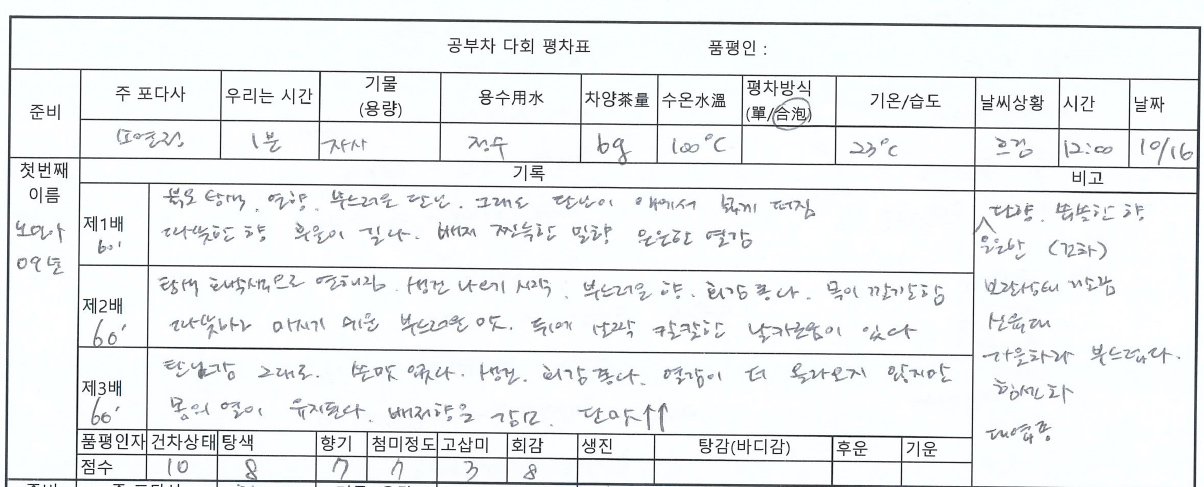 공부차 다회 평차표 품평인 :
준비 주 포다사 우리는 시간 기물 (용량) 용수用水 차양茶量 수온水溫 평차방식 (單/合泡) 기온/습도 날씨상황 시간 날짜
1분 자사 정수 6g 100°C 23°C 흐림 12:00 10/16
첫번째 이름 기록 비고
09년
제1배 60' 탕색, 열향, 부드러운 단난. 그래도 단난이 퍼짐
따뜻한 향 후운이 길다. 배저 찐득한 밀향 은은한 열감
제2배 60' 탕색 호박색으로 연해짐. 생진 나오기 시작. 부드러운 향. 회감 좋다. 목이 깔깔함
마시기 쉬운 부드러운 맛. 뒤에 살짝 칼칼한 날카로움이 있다
제3배 60' 탄닌감 그대로. 쓴맛 없다. 생진, 회감 좋다. 열감이 더 올라오지 않지만
몸의 열이 유지된다. 배저향은 감모. 단맛↑↑
단향, 뿌뿟한 향
은은한
보관상태
부드럽다.
품평인자 건차상태 탕색 향기 첨미정도 고삽미 회감 생진 탕감(바디감) 후운 기운
점수 10 8 7 7 3 8